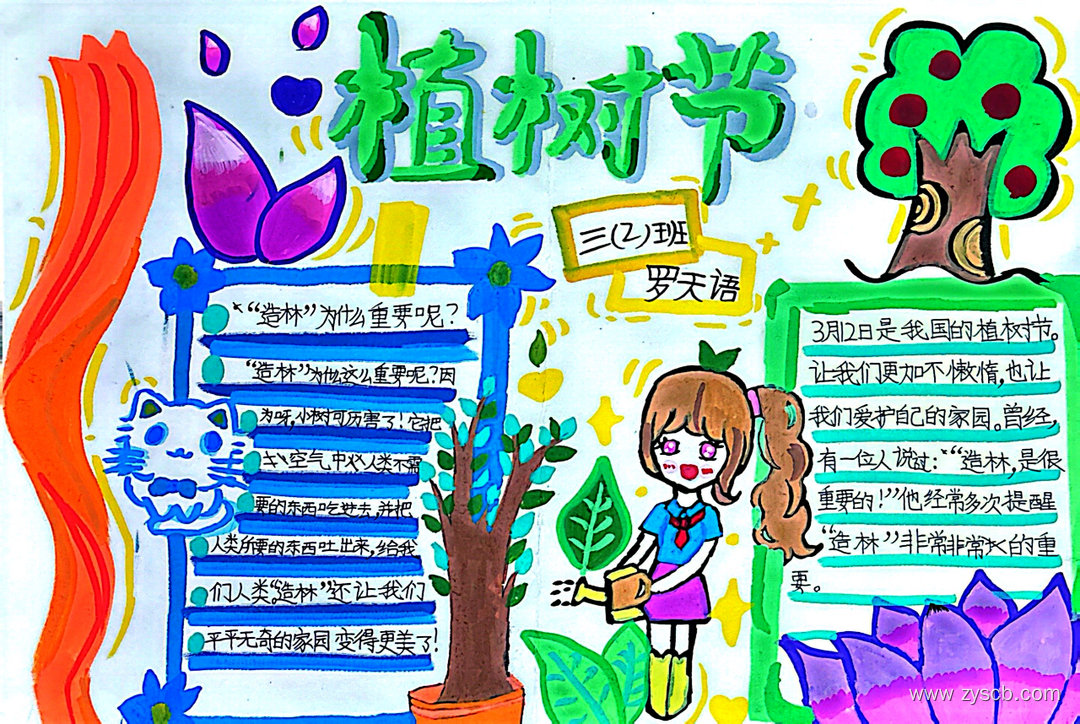 植树节
三(2)班
罗天语
“造林”为什么重要呢?
“造林”为什么这么重要呢?因
为呀,小树可厉害了!它把
空气中对人类不需
要的东西吃进去,并把
人类所要的东西吐出来,给我
们人类。“造林”还让我们
平平无奇的家园变得更美了!
3月12日是我国的植树节。
让我们更加不懒惰,也让
我们爱护自己的家园。曾经,
有一位人说过:“造林,是很
重要的!”他经常多次提醒
“造林”非常非常的重
要。
www.zyscb.com